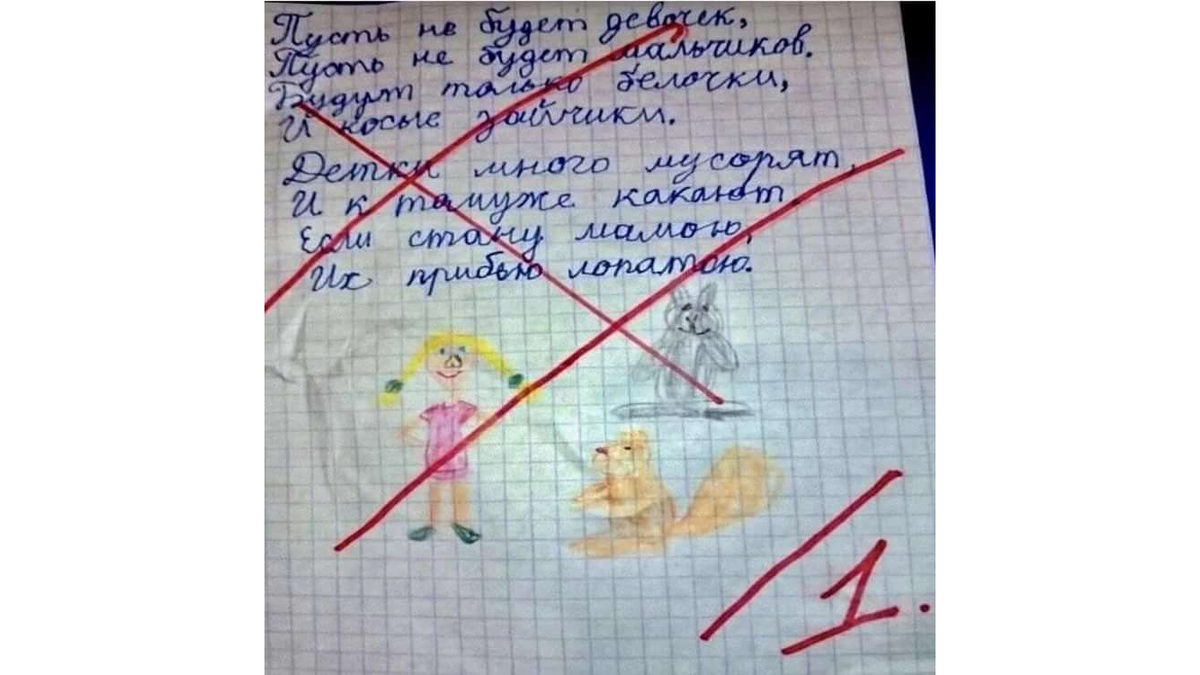 Пусть не будет девочек,
Пусть не будет мальчиков.
Будут только белочки,
И косые зайчики.
Детки много мусорят,
И к томуже какают.
Если стану мамою,
Их прибью лопатою.
1.